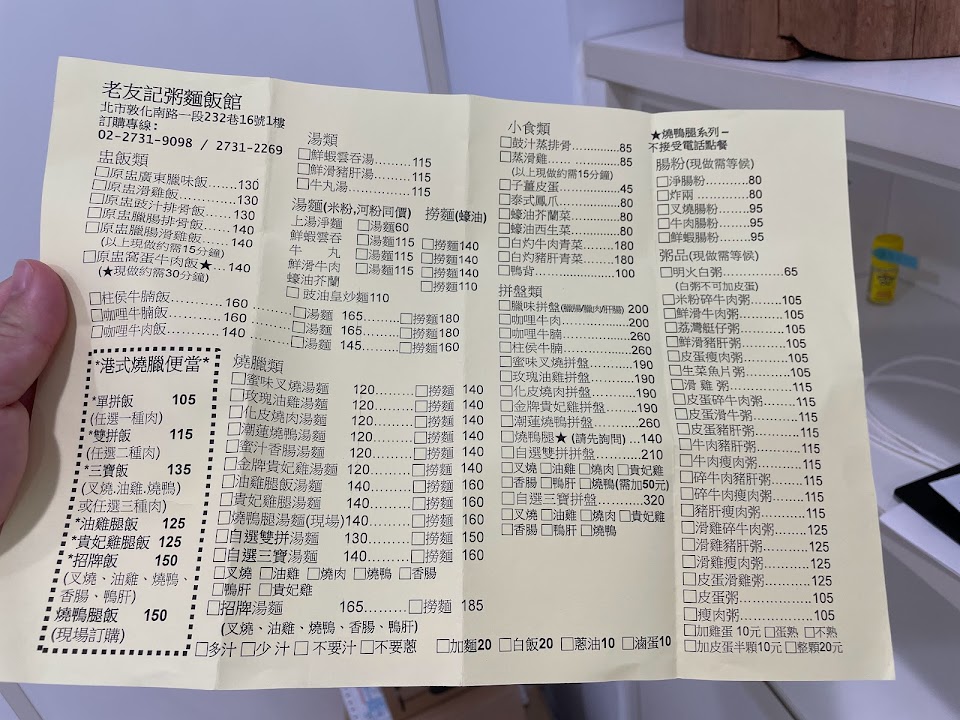 老友記粥麵飯館
北市敦化南路一段232巷16號1樓
訂購專線:
02-2731-9098 / 2731-2269
盅飯類
□原盅廣東臘味飯.......130
□原盅滑雞飯.......130
□原盅豉汁排骨飯.......130
□原盅臘腸排骨飯.......140
□原盅臘腸滑雞飯.......140
(以上現做約需15分鐘)
□原盅窩蛋牛肉飯★...140
(★現做約需30分鐘)
□柱侯牛腩飯............160 □湯麵 165......□撈麵180
□咖哩牛腩飯............160 □湯麵 165......□撈麵180
□咖哩牛肉飯............140 □湯麵 145......□撈麵160
*港式燒臘便當*
*單拼飯 105
(任選一種肉)
*雙拼飯 115
(任選二種肉)
*三寶飯 135
(叉燒.油雞.燒鴨)
或任選三種肉)
*油雞腿飯 125
*貴妃雞腿飯 125
*招牌飯 150
(叉燒、油雞、燒鴨、
香腸、鴨肝)
燒鴨腿飯 150
(現場訂購)
湯類
□鮮蝦雲吞湯.........115
□鮮滑豬肝湯.........115
□牛丸湯..............115
湯麵(米粉,河粉同價) 撈麵(蠔油)
上湯淨麵 □湯麵60
鮮蝦雲吞 □湯麵115 □撈麵140
牛 丸 □湯麵115 □撈麵140
鮮滑牛肉 □湯麵115 □撈麵140
蠔油芥蘭 □撈麵110
□ 豉油皇炒麵110
燒臘類
□蜜味叉燒湯麵 120......□撈麵 140
□玫瑰油雞湯麵 120......□撈麵 140
□化皮燒肉湯麵 120......□撈麵 140
□潮蓮燒鴨湯麵 120......□撈麵 140
□蜜汁香腸湯麵 120......□撈麵 140
□金牌貴妃雞湯麵 120......□撈麵 140
□油雞腿飯湯麵 140......□撈麵 160
□貴妃雞腿湯麵 140......□撈麵 160
□燒鴨腿湯麵(現場)140......□撈麵 160
□自選雙拼湯麵 130......□撈麵 150
□自選三寶湯麵 140......□撈麵 160
□叉燒 □油雞 □燒肉 □燒鴨 □香腸
□鴨肝 □貴妃雞
□招牌湯麵 165.........□撈麵 185
(叉燒、油雞、燒鴨、香腸、鴨肝)
□多汁 □少汁 □不要汁 □不要蔥 □加麵20 □白飯20 □蔥油10 □滷蛋10
小食類
□豉汁蒸排骨............85
□蒸滑雞..... ...........85
(以上現做約需15分鐘)
□子薑皮蛋...............45
□泰式鳳爪...............80
□蠔油芥蘭菜............80
□蠔油西生菜............80
□白灼牛肉青菜.........180
□白灼豬肝青菜.........180
□鴨背..................100
拼盤類
□臘味拼盤(臘腸/臘肉/肝腸) 200
□咖哩牛肉...............200
□咖哩牛腩...............260
□柱侯牛腩...............260
□蜜味叉燒拼盤.........190
□玫瑰油雞拼盤.........190
□化皮燒肉拼盤.........190
□金牌貴妃雞拼盤......190
□潮蓮燒鴨拼盤.........260
□燒鴨腿★ (請先詢問) ...140
□自選雙拼拼盤.........210
□叉燒 □油雞 □燒肉 □貴妃雞
□香腸 □鴨肝 □燒鴨(需加50元)
□自選三寶拼盤.........320
□叉燒 □油雞 □燒肉 □貴妃雞
□香腸 □鴨肝 □燒鴨
★燒鴨腿系列－
不接受電話點餐
腸粉(現做需等候)
□淨腸粉............80
□炸兩 ..............80
□叉燒腸粉.........95
□牛肉腸粉.........95
□鮮蝦腸粉.........95
粥品(現做需等候)
□明火白粥...............65
(白粥不可加皮蛋)
□米粉碎牛肉粥.........105
□鮮滑牛肉粥............105
□荔灣艇仔粥............105
□鮮滑豬肝粥............105
□皮蛋瘦肉粥............105
□生菜魚片粥............105
□滑 雞 粥...............105
□皮蛋碎牛肉粥.........115
□皮蛋滑牛粥............115
□皮蛋豬肝粥............115
□牛肉豬肝粥............115
□牛肉瘦肉粥............115
□碎牛豬肝粥............115
□碎牛瘦肉粥............115
□豬肝瘦肉粥............115
□滑雞碎牛肉粥.........125
□滑雞豬肝粥............125
□滑雞瘦肉粥............125
□皮蛋滑雞粥............125
□皮蛋粥..................105
□瘦肉粥..................105
□加雞蛋 10元 □蛋熟 □不熟
□加皮蛋半顆10元 □整顆20元